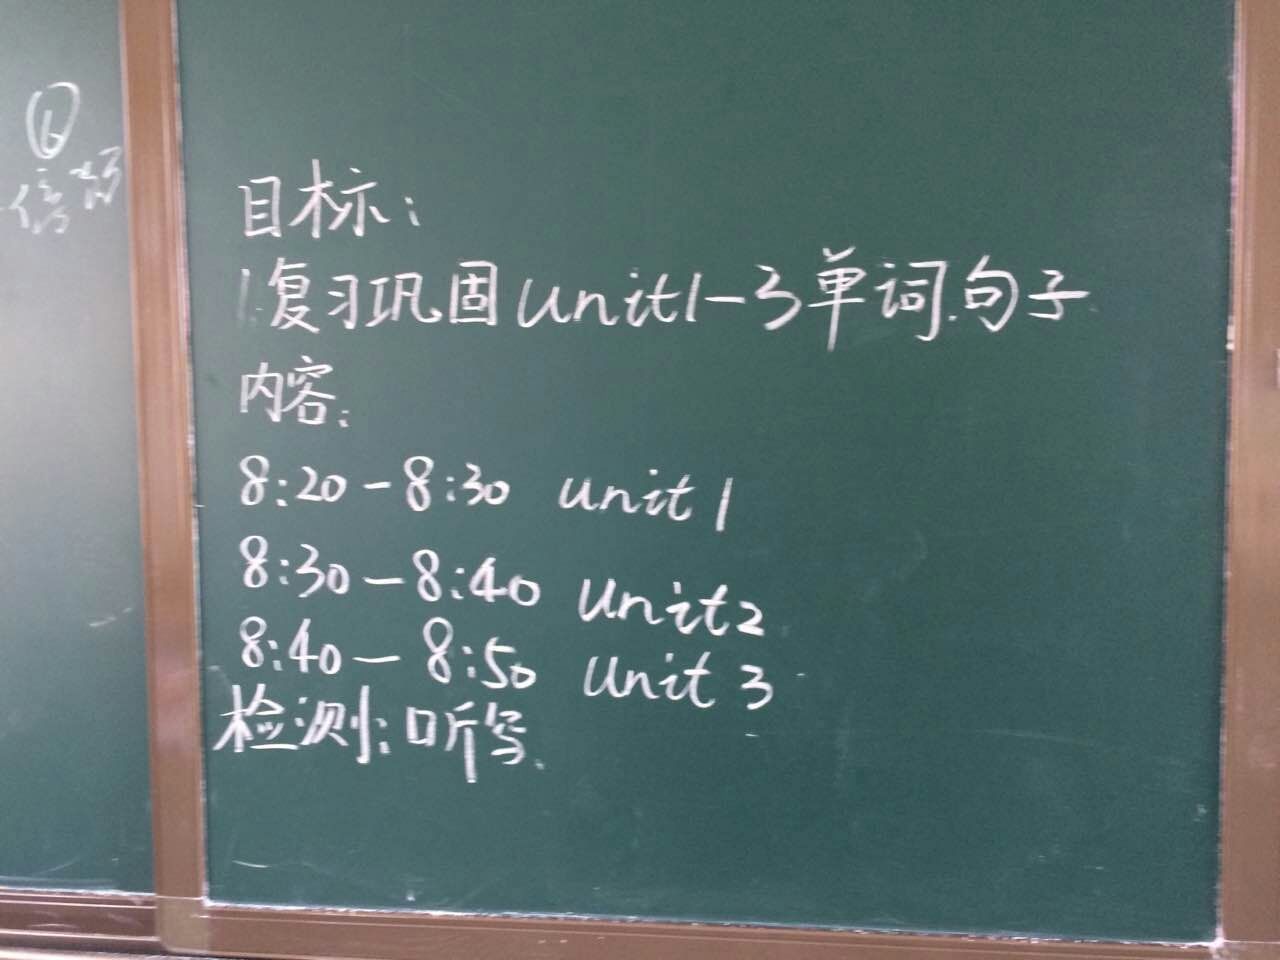 ⑥
目标:
1.复习巩固unit1-3单词.句子
内容:
8:20-8:30 unit 1
8:30-8:40 unit2
8:40-8:50 unit 3
检测:听写.